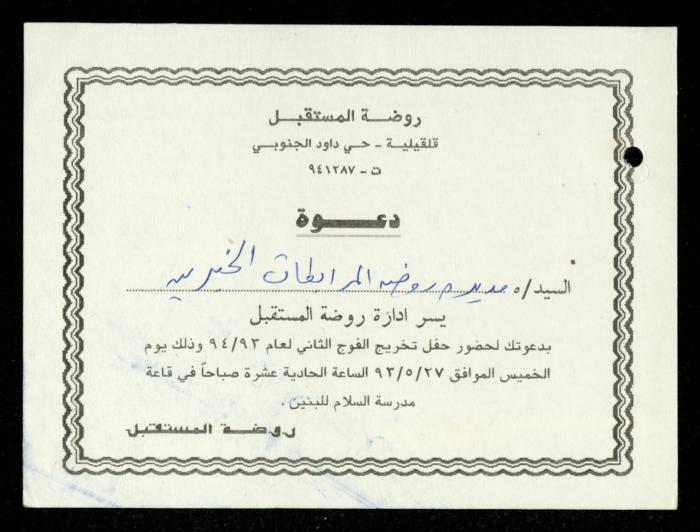 روضة المستقبل
قلقيلية - حي داود الجنوبي
ت - ٩٤١٢٨٧
دعوة
السيد/ه مديره روضه المرابطات الخيريه
يسر ادارة روضة المستقبل
بدعوتك لحضور حفل تخريج الفوج الثاني لعام ٩٤/٩٣ وذلك يوم
الخميس الموافق ٩٣/٥/٢٧ الساعة الحادية عشرة صباحاً في قاعة
مدرسة السلام للبنين .
روضة المستقبل